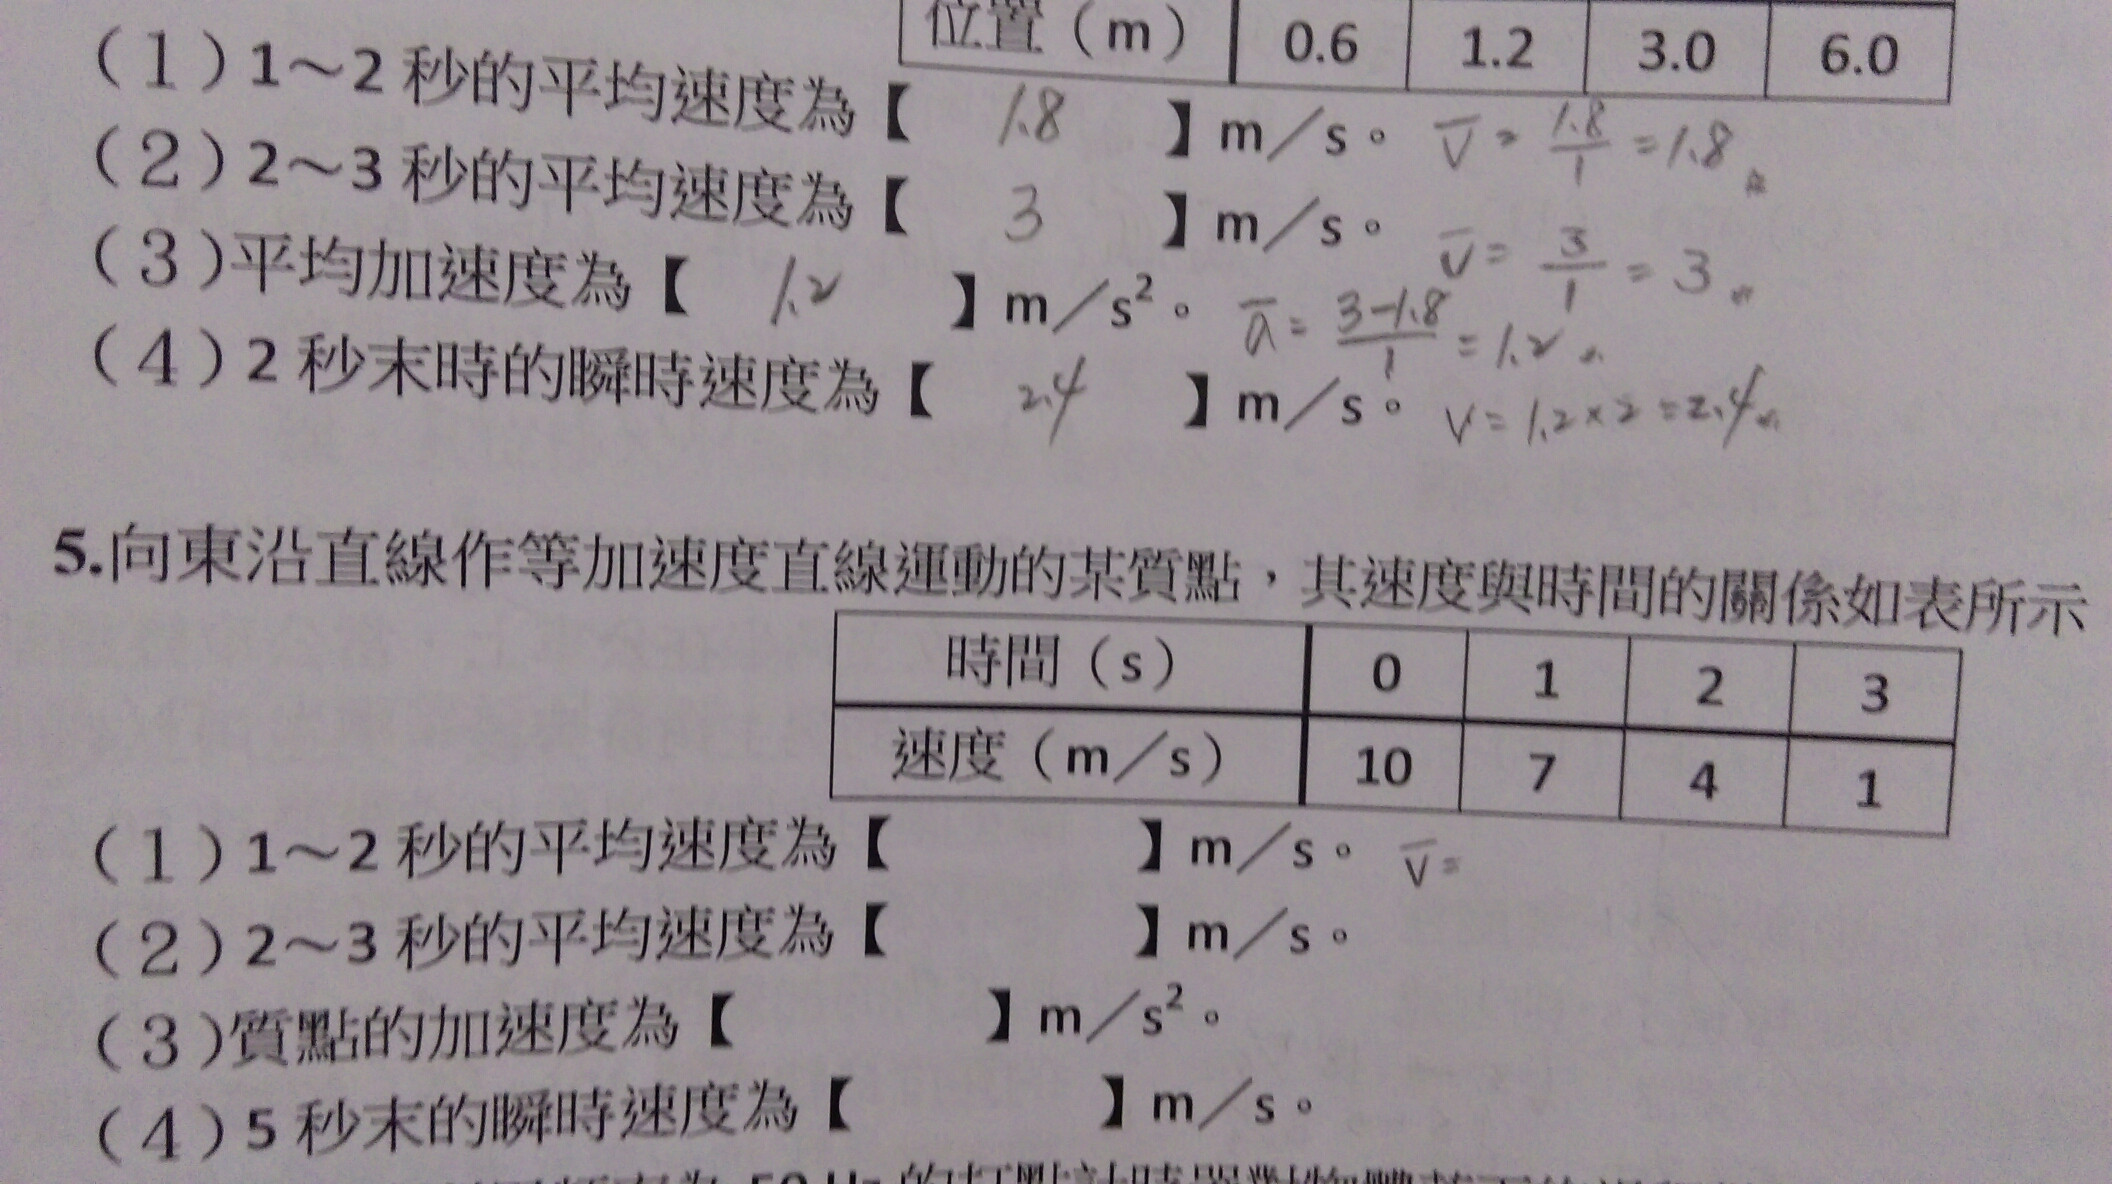 位置（m） 0.6 1.2 3.0 6.0
（1）1～2 秒的平均速度為【 1.8 】m／s。 v̅ = 1.8/1 = 1.8
（2）2～3 秒的平均速度為【 3 】m／s。 v̅ = 3/1 = 3
（3）平均加速度為【 1.2 】m／s²。 a̅ = 3-1.8/1 = 1.2
（4）2 秒末時的瞬時速度為【 2.4 】m／s。 v = 1.2×2 = 2.4
5.向東沿直線作等加速度直線運動的某質點，其速度與時間的關係如表所示
時間（s） 0 1 2 3
速度（m／s） 10 7 4 1
（1）1～2 秒的平均速度為【 】m／s。 v̅ =
（2）2～3 秒的平均速度為【 】m／s。
（3）質點的加速度為【 】m／s²。
（4）5 秒末的瞬時速度為【 】m／s。